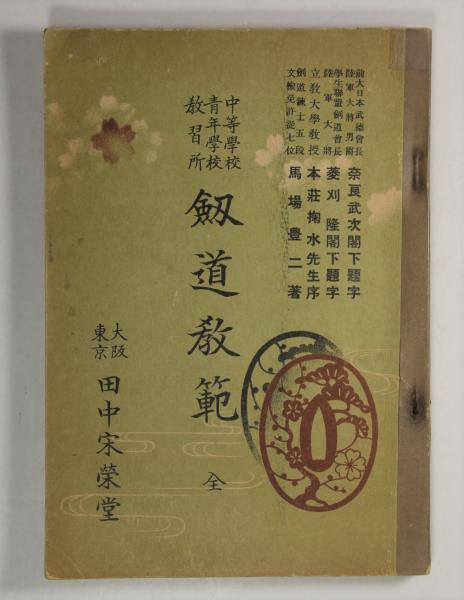 前大日本武徳會長
陸軍大將男爵
奈良武次閣下題字
學生聯盟劍道會長
陸軍大將
菱刈隆閣下題字
立敎大學敎授
本莊掬水先生序
劍道錬士五段
文檢免許從七位
馬場豊二著
中等學校
青年學校
敎習所
劔道敎範
全
大阪
東京
田中宋榮堂